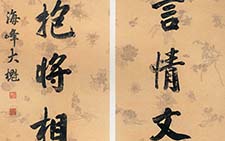 言情文
抱將相
海峰大櫆